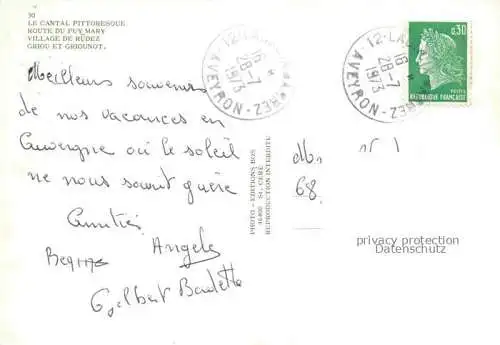 30
LE CANTAL PITTORESQUE
ROUTE DU PUY MARY
VILLAGE DE RUDEZ
GRIOU ET GRIOUNOT.
Meilleurs souvenirs
de nos vacances en
Auvergne où le soleil
ne nous sourit guère
Amitiés
Angèle
Gilbert
PHOTO - EDITIONS BOS
46400 St-CERÉ
REPRODUCTION INTERDITE
12-LA
16 H
28-7
1973
AVEYRON
12-LA
16 H
28-7
1973
AVEYRON
0,30
POSTES
RÉPUBLIQUE FRANÇAISE
n° 1
68.
privacy protection
Datenschutz